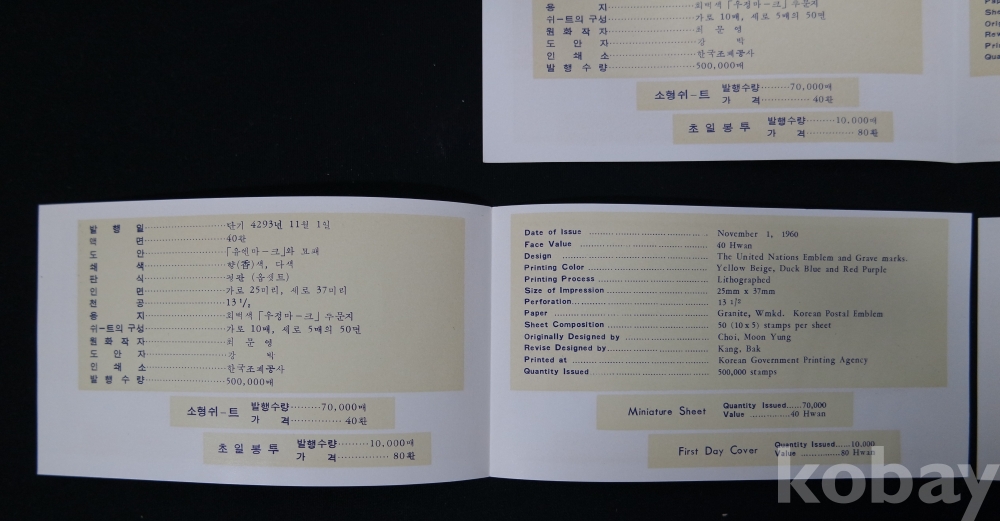 용 지 회백색 「우정마-크」 수문지
쉬-트의 구성 가로 10매, 세로 5매의 50면
원 화 작 자 최 문 영
도 안 자 강 박
인 쇄 소 한국조폐공사
발 행 수 량 500,000매
소형쉬-트 발행수량 70,000매
가 격 40환
초 일 봉 투 발행수량 10,000매
가 격 80환
Pa
She
Orig
Rev
Prin
Qua
발 행 일 단기 4293년 11월 1일
액 면 40환
도 안 「유엔마-크」와 묘패
쇄 색
판 식 평판 (옵셋트)
인 면 가로 25미리, 세로 37미리
천 공 13 1/2
용 지 회백색 「우정마-크」 수문지
쉬-트의 구성 가로 10매, 세로 5매의 50면
원 화 작 자 최 문 영
도 안 자 강 박
인 쇄 소 한국조폐공사
발 행 수 량 500,000매
소형쉬-트 발행수량 70,000매
가 격 40환
초 일 봉 투 발행수량 10,000매
가 격 80환
Date of Issue November 1, 1960
Face Value 40 Hwan
Design The United Nations Emblem and Grave marks.
Printing Color Yellow Beige, Duck Blue and Red Purple
Printing Process Lithographed
Size of Impression 25mm x 37mm
Perforation 13 1/2
Paper Granite, Wmkd. Korean Postal Emblem
Sheet Composition 50 (10x5) stamps per sheet
Originally Designed by Choi, Moon Yung
Revise Designed by Kang, Bak
Printed at Korean Government Printing Agency
Quantity Issued 500,000 stamps
Miniature Sheet Quantity Issued......70,000
Value 40 Hwan
First Day Cover Quantity Issued.....10,000
Value 80 Hwan
kobay